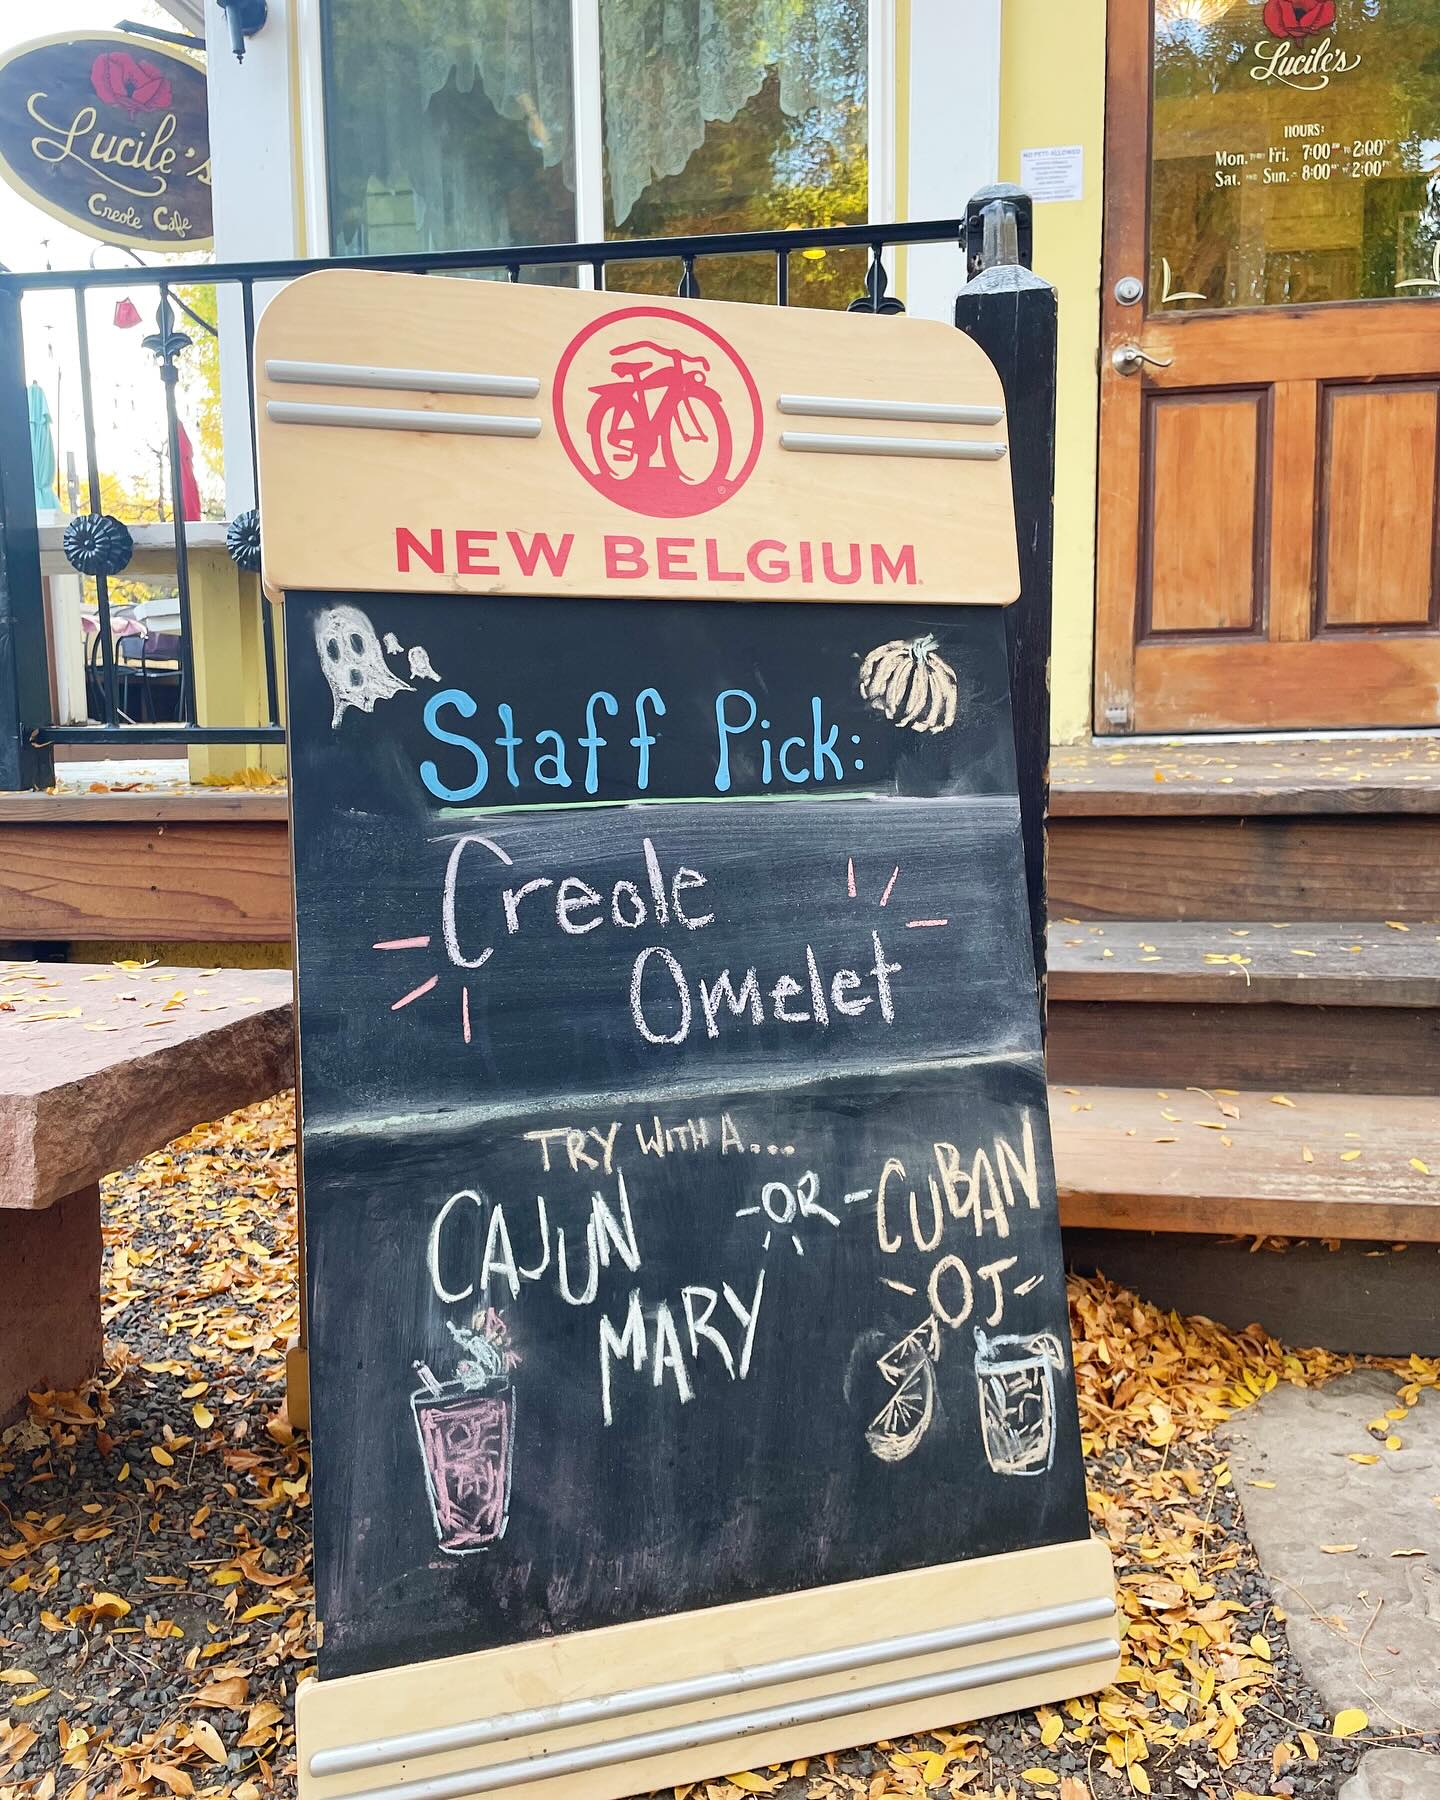 Lucile's
Creole Cafe
Lucile's
HOURS:
Mon. THRU Fri. 7:00AM TO 2:00PM
Sat. AND Sun. - 8:00AM TO 2:00PM
NO PETS ALLOWED
NEW BELGIUM
Staff Pick:
Creole
Omelet
TRY WITH A...
CAJUN
MARY
-OR-
CUBAN
OJ